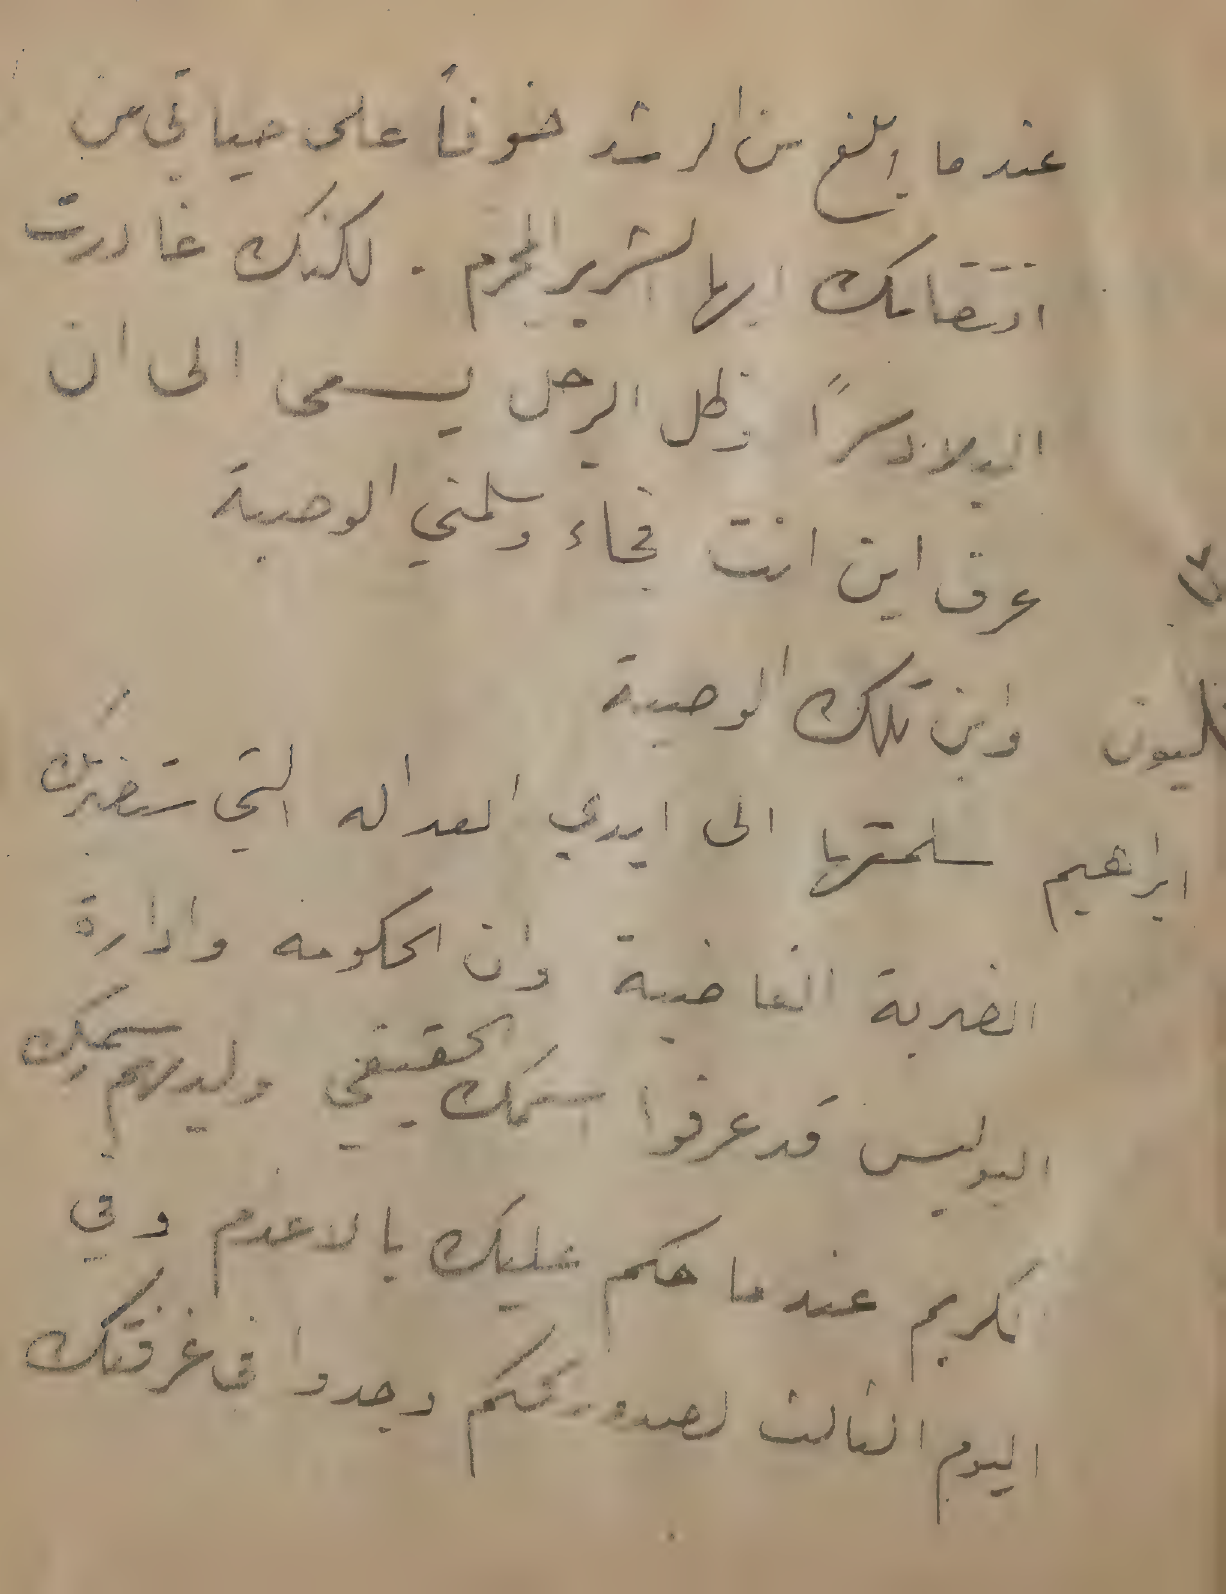 عندما ابلغ سن الرشد خوفاً على حياتي من
انتقامك ايها الشرير المجرم . لكنك غادرت
البلاد سراً وظل الرجل يسعى الى ان
عرف اين انت فجاء وسلمني الوصية
واين تلك الوصية
ابراهيم سلمتها الى ايدي العداله التي ستضربك
الضربة القاضية وان الحكومه وادارة
البوليس قد عرفوا اسمك الحقيقي ولديهم
كريم عندما حكم عليك بالاعدام وفي
اليوم الثالث لصدور وجدوا في غرفتك